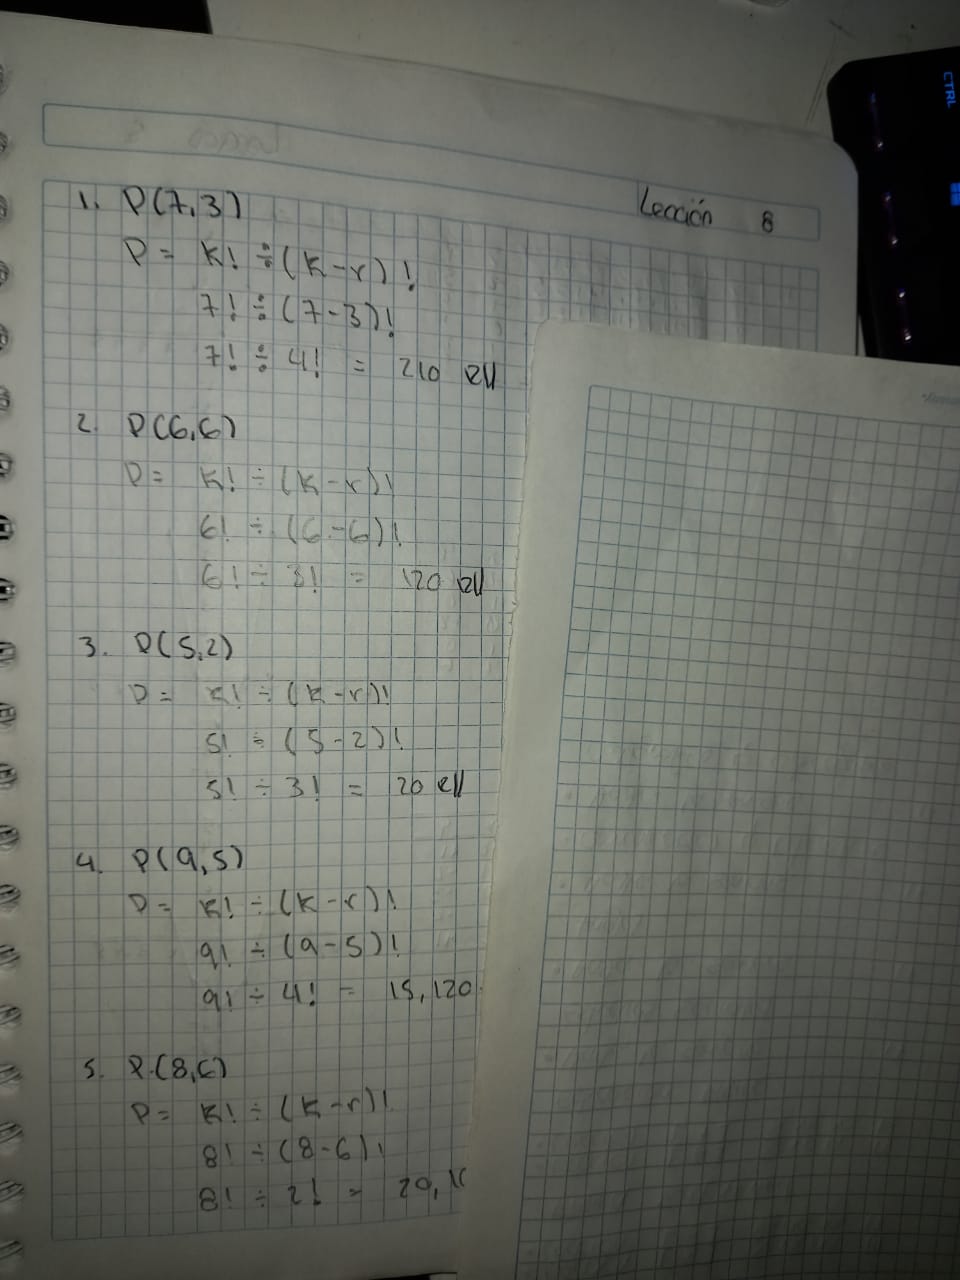 Lección 8
1. P(7,3)
P = k! ÷ (k-r)!
7! ÷ (7-3)!
7! ÷ 4! = 210
2. P(6,6)
P = k! ÷ (k-r)!
6! ÷ (6-6)!
6! ÷ 3! = 120
3. P(5,2)
P = k! ÷ (k-r)!
5! ÷ (5-2)!
5! ÷ 3! = 20
4. P(9,5)
P = k! ÷ (k-r)!
9! ÷ (9-5)!
9! ÷ 4! = 15,120
5. P(8,6)
P = k! ÷ (k-r)!
8! ÷ (8-6)!
8! ÷ 2! = 20,1
CTRL